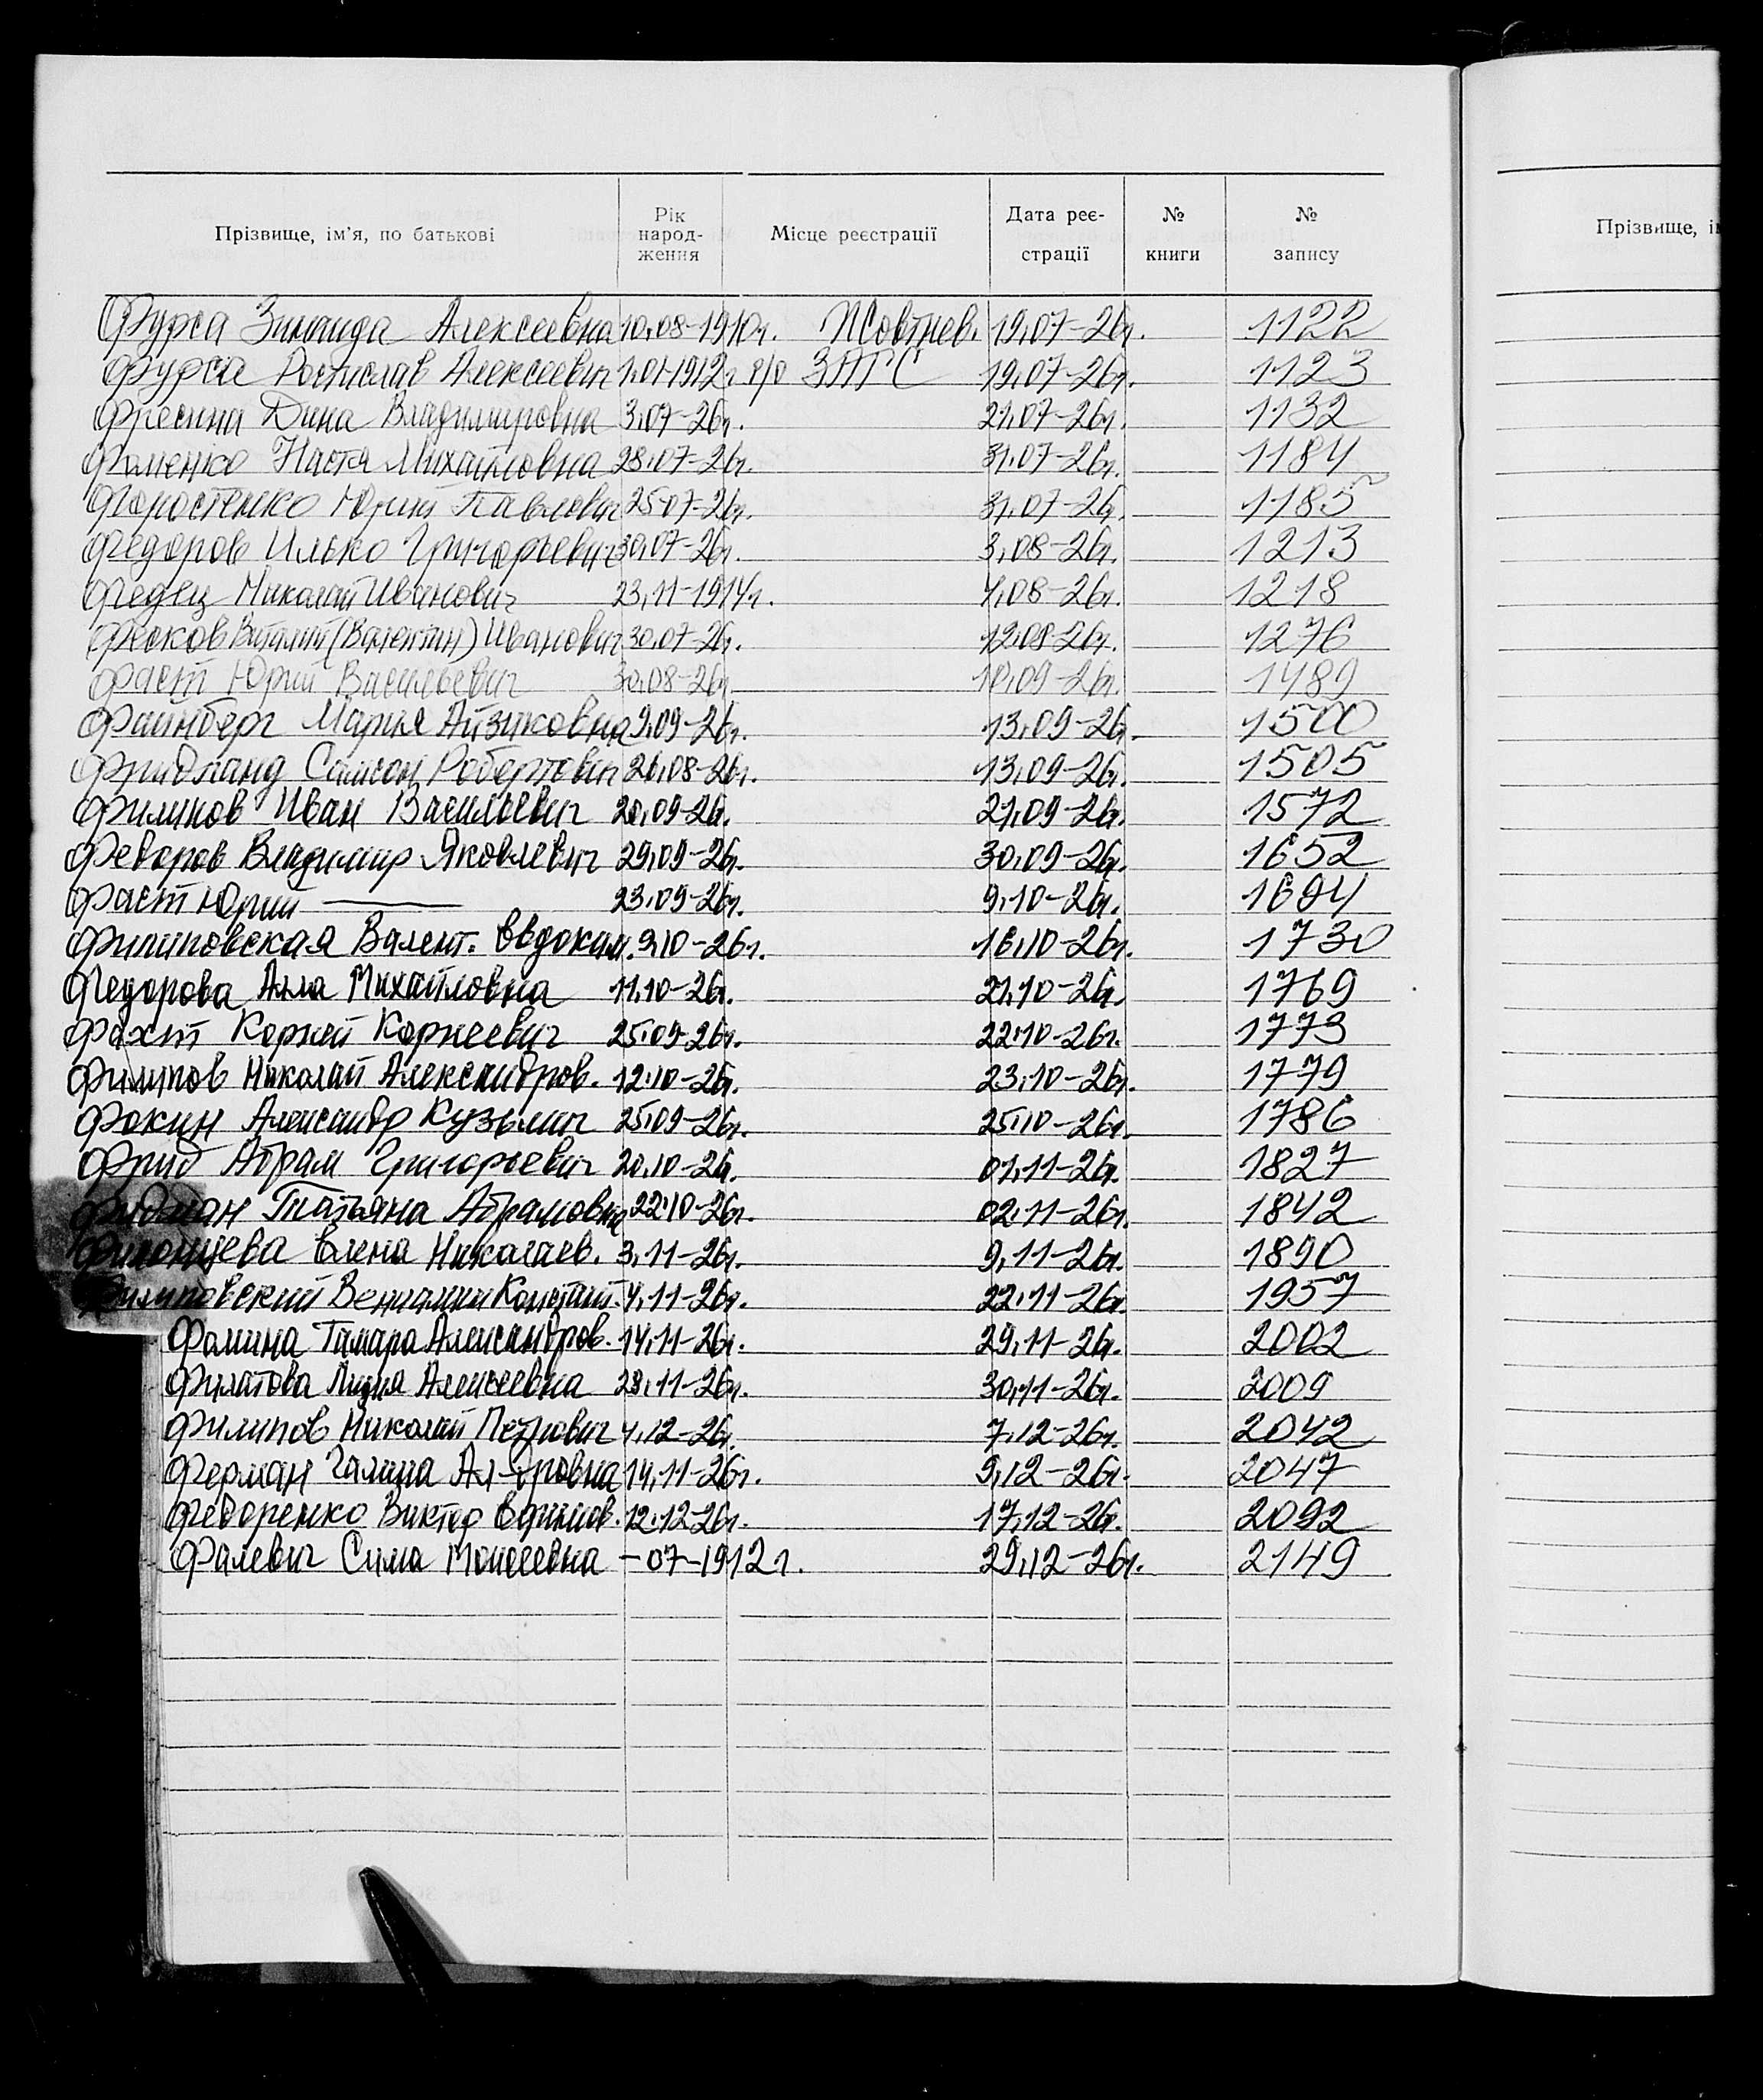 Прізвище, ім'я, по батькові Рік народ-ження Місце реєстрації Дата реє-страції № книги № запису
Прізвище, і
Фурса Зинаида Алексеевна 10.08-1910г. Жовтнев. 19.07-26г. 1122
Фурса Ростислав Алексеевич 1.01-1912г р/о ЗАГС 19.07-26г. 1123
Фресина Дина Владимировна 3.07-26г. 21.07-26г. 1132
Фоменко Настя Михайловна 28.07-26г. 31.07-26г. 1184
Форостенко Юрий Павлович 25.07-26г. 31.07-26г. 1185
Федоров Илько Григорьевич 30.07-26г. 3.08-26г. 1213
Федец Николай Иванович 23.11-1914г. 4.08-26г. 1218
Фесков Виталий (Валентин) Иванович 30.07-26г. 12.08-26г. 1276
Фаст Юрий Васильевич 30.08-26г. 10.09-26г. 1489
Файнберг Мария Айзиковна 9.09-26г. 13.09-26г. 1500
Фридланд Самсон Робертович 26.08-26г. 13.09-26г. 1505
Филипов Иван Васильевич 20.09-26г. 21.09-26г. 1572
Федоров Владимир Яковлевич 29.09-26г. 30.09-26г. 1652
Фаст Юрий — 23.09-26г. 9.10-26г. 1694
Филиповская Валент. Евдоким. 9.10-26г. 16.10-26г. 1730
Федорова Алла Михайловна 11.10-26г. 21.10-26г. 1769
Фахт Корней Корнеевич 25.09-26г. 22.10-26г. 1773
Филипов Николай Александров. 12.10-26г. 23.10-26г. 1779
Фокин Александр Кузьмич 25.09-26г. 25.10-26г. 1786
Фрид Абрам Григорьевич 20.10-26г. 01.11-26г. 1827
Фидман Татьяна Абрамовна 22.10-26г. 02.11-26г. 1842
Елена Николаев. 3.11-26г. 9.11-26г. 1890
Филиповский Вениамин Констант. 4.11-26г. 22.11-26г. 1957
Фомина Тамара Александров. 14.11-26г. 29.11-26г. 2002
Филатова Лидия Алексеевна 28.11-26г. 30.11-26г. 2009
Филипов Николай Петрович 4.12-26г. 7.12-26г. 2042
Ферман Галина Ал-дровна 14.11-26г. 9.12-26г. 2047
Федоренко Виктор Ефимов. 12.12-26г. 17.12-26г. 2092
Фалевич Сима Моисеевна -07-1912г. 29.12-26г. 2149